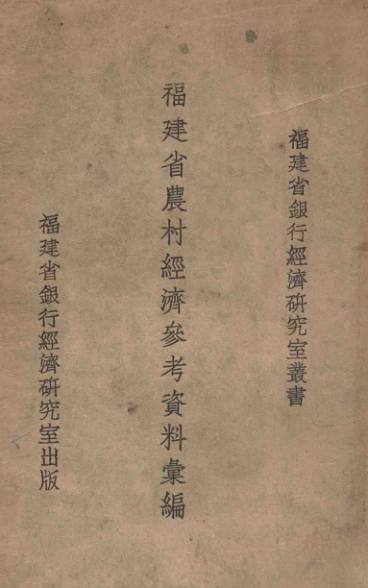 福建省銀行經濟研究室叢書
福建省農村經濟參考資料彙編
福建省銀行經濟研究室出版